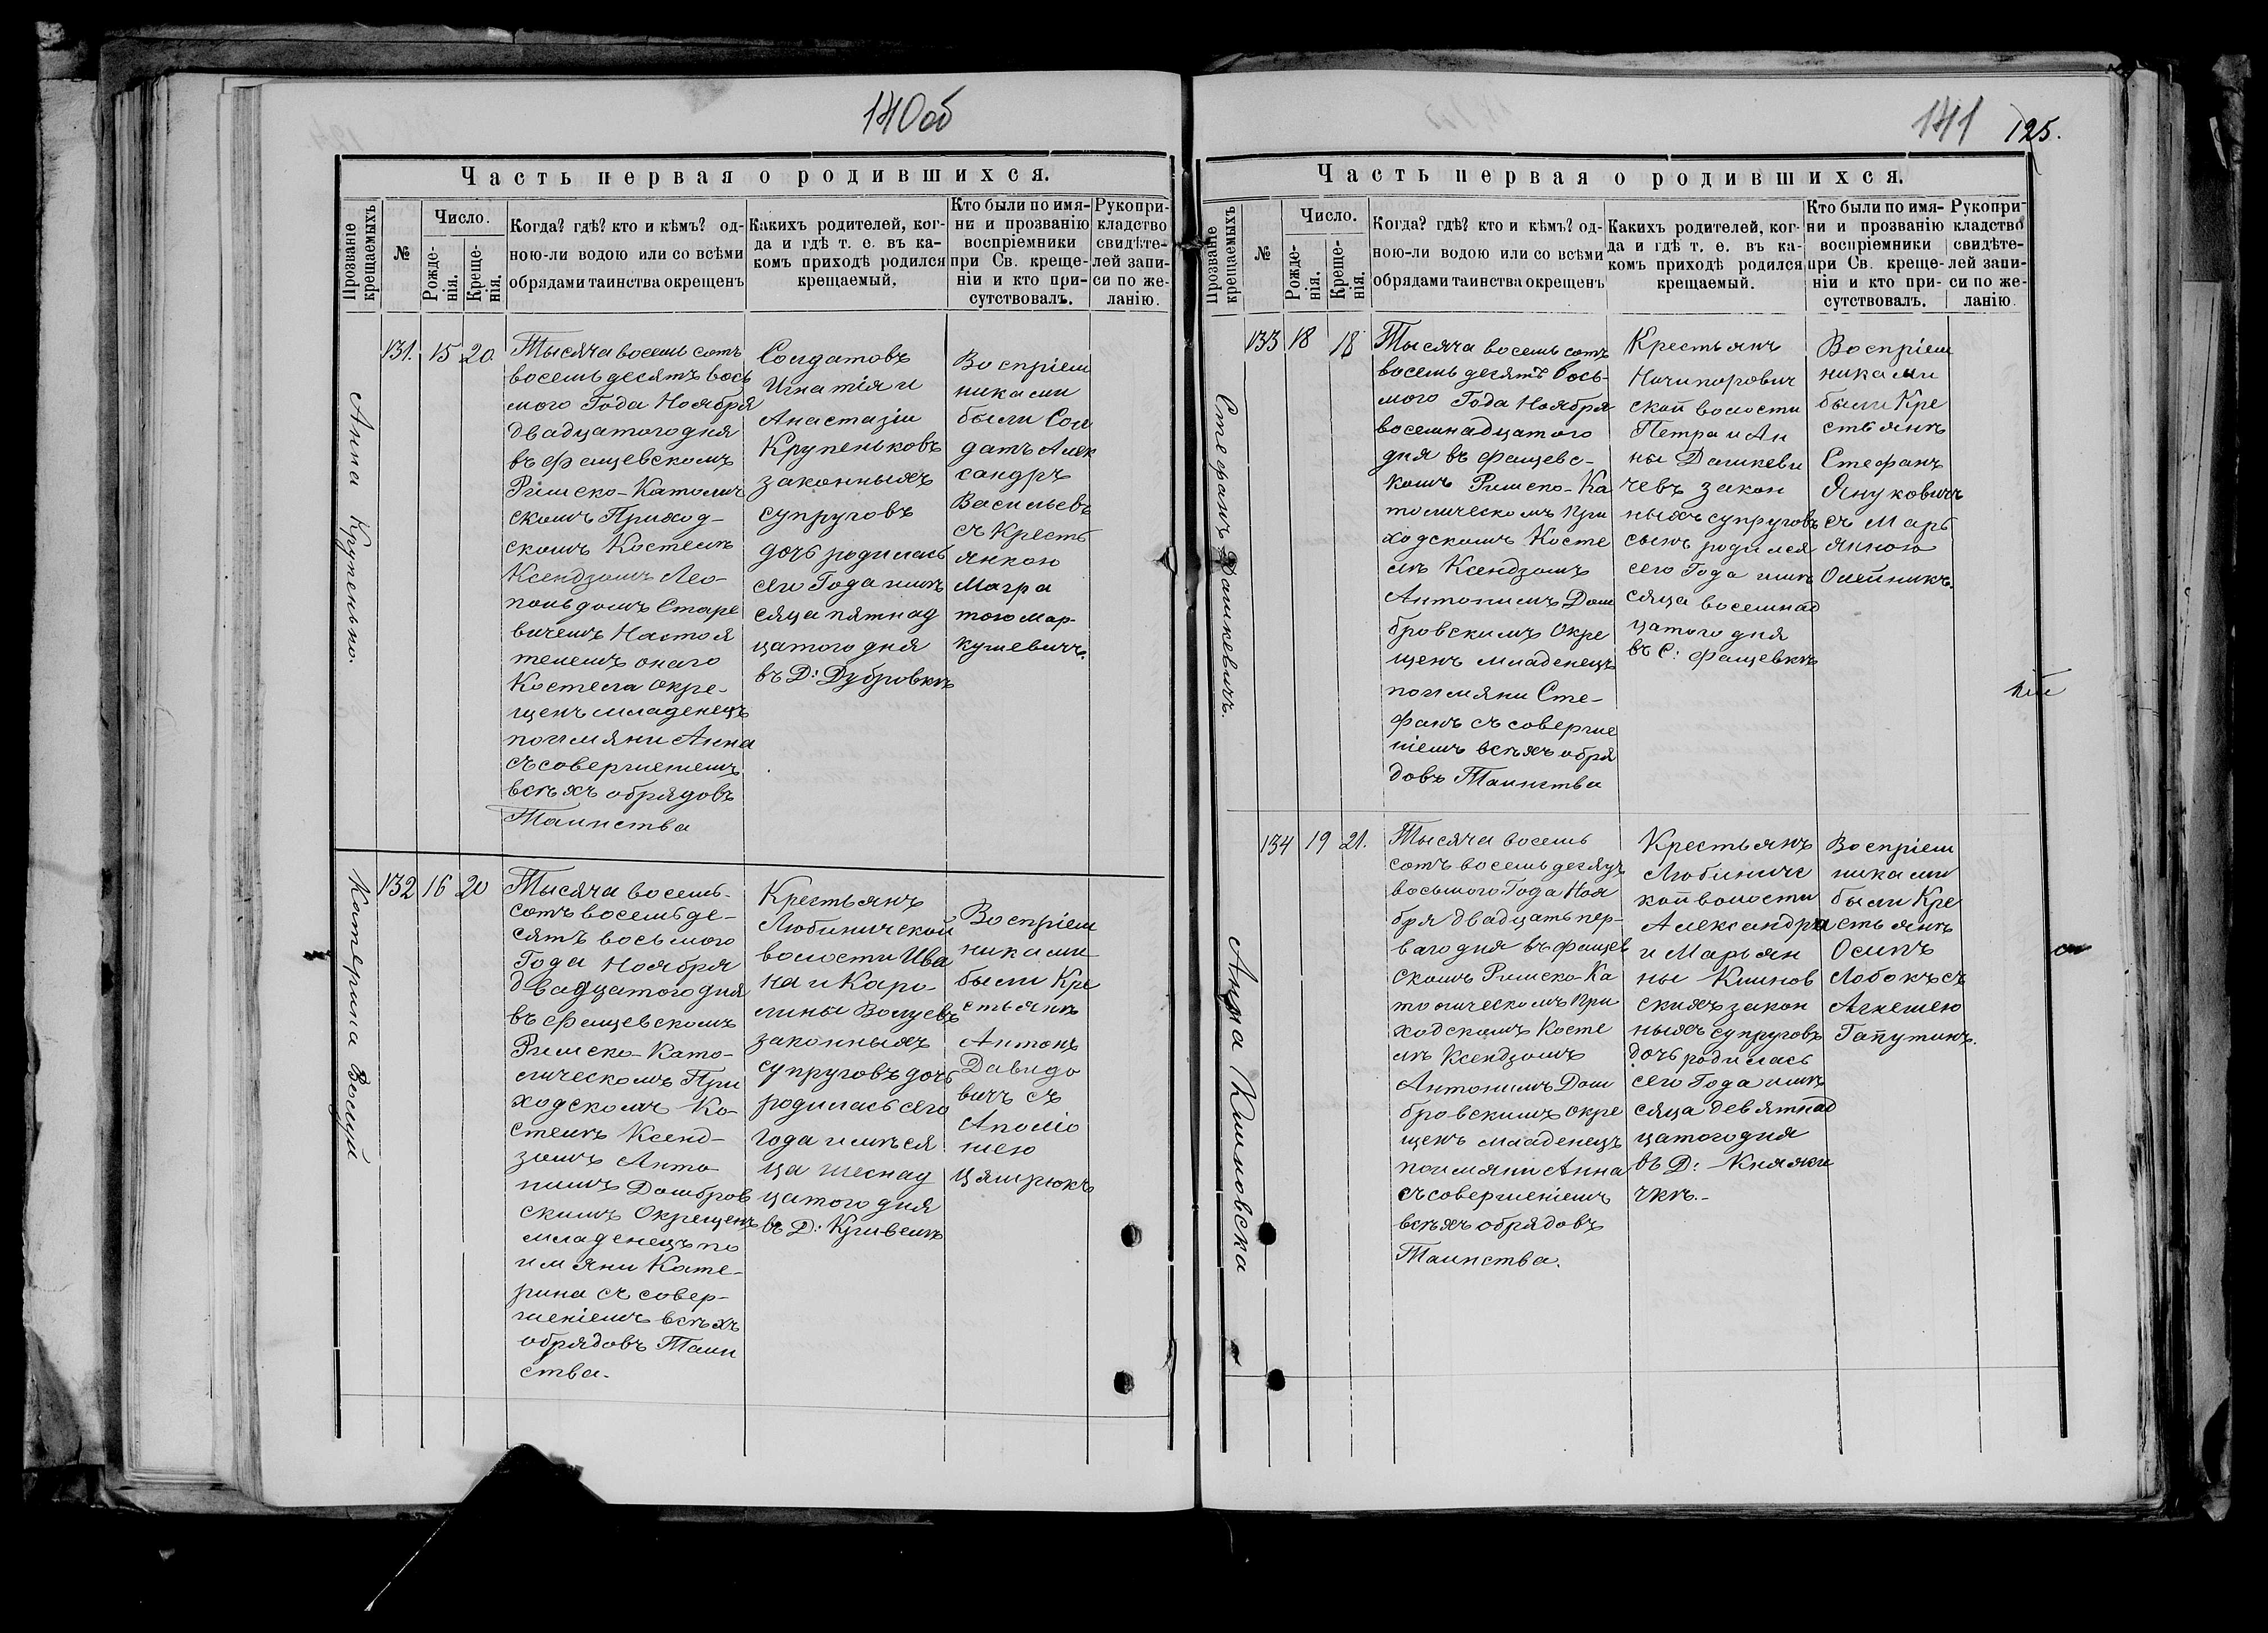 140об
Часть первая о родившихся.
Прозваніе крещаемыхъ
№
Число.
Рожде-
нія.
Креще-
нія.
Когда? гдѣ? кто и кѣмъ? од-
ною-ли водою или со всѣми
обрядами таинства окрещенъ
Какихъ родителей, ког-
да и гдѣ т. е. въ ка-
комъ приходѣ родился
крещаемый.
Кто были по имя-
ни и прозванію
воспріемники
при Св. креще-
ніи и кто при-
сутствовалъ.
Рукопри-
кладство
свидѣте-
лей запи-
си по же-
ланію.
Анна Крупенько.
131. 15 20.
Тысяча восемь сотъ
восемьдесятъ вось
мого Года Ноября
двадцатого дня
въ Фащевскомъ
Римско-Католич
скомъ Приход-
скомъ Костелѣ
Ксендзомъ Лео-
польдомъ Старе
вичемъ Настоя
телемъ онаго
Костела окре-
щенъ младенецъ
по имяни Анна
съ совершеніемъ
всѣхъ обрядовъ
Таинства
Солдатовъ
Игнатія и
Анастазіи
Крупеньковъ
законныхъ
супруговъ
дочь родилась
сего Года и мѣ
сяца пятнад
цатого дня
въ Д: Дубровкѣ
Воспріем
никами
были Сол
датъ Алек
сандръ
Васильевъ
съ Кресть
янкою
Магра
тою Мар-
кушевичъ.
Катерина Волуй
132 16 20
Тысяча восемь-
сотъ восемь де-
сятъ восьмого
Года Ноября
двадцатого дня
въ Фащевскомъ
Римско-Като-
лическомъ При
ходскомъ Ко-
стелѣ Ксенд-
зомъ Анто
нимъ Домбров
скимъ Окрещенъ
младенецъ по
имяни Кате-
рина съ совер-
шеніемъ всѣхъ
обрядовъ Таин
ства.
Крестьянъ
Любиничской
волости Ива
на и Каро-
лины Волуевъ
законныхъ
супруговъ дочь
родилась сего
года и мѣся
ца шеснад
цатого дня
въ Д:
Воспріем
никами
были Кре
стьянѣ
Антонъ
Давидо
вичъ съ
Аполіо
ніею
Цямрюкъ
141 125.
Часть первая о родившихся.
Прозваніе крещаемыхъ
№
Число.
Рожде-
нія.
Креще-
нія.
Когда? гдѣ? кто и кѣмъ? од-
ною-ли водою или со всѣми
обрядами таинства окрещенъ
Какихъ родителей, ког-
да и гдѣ т. е. въ ка-
комъ приходѣ родился
крещаемый.
Кто были по имя-
ни и прозванію
воспріемники
при Св. креще-
ніи и кто при-
сутствовалъ.
Рукопри-
кладство
свидѣте-
лей запи-
си по же-
ланію.
Стефанъ Дашкевичъ.
133 18 18
Тысяча восемь сотъ
восемь десятъ вось-
мого Года Ноября
восемнадцатого
дня въ Фащевс-
комъ Римско-Ка
толическомъ При
ходскомъ Косте
лѣ Ксендзомъ
Антонимъ Дом
бровскимъ Окре
щенъ младенецъ
по имяни Сте-
фанъ съ соверше
ніемъ всѣхъ обря
довъ Таинства
Крестьянъ
Ничипорович
ской волости
Петра и Ан
ны Дашкеви
чевъ закон
ныхъ супруговъ
сынъ родился
сего Года и мѣ
сяца восемнад
цатого дня
въ С: Фащевкѣ
Воспріем
никами
были Кре
стьянѣ
Стефанъ
Януковичъ
съ Марь
янною
Олейникъ.
Анна Климовска
134 19 21.
Тысяча восемь
сотъ восемь десятъ
восьмого Года Ноя
бря двадцать пер-
ваго дня въ Фащев
скомъ Римско-Ка
толическомъ При
ходскомъ Косте
лѣ Ксендзомъ
Антонимъ Дом
бровскимъ окре
щенъ младенецъ
по имяни Анна
съ совершеніемъ
всѣхъ обрядовъ
Таинства.
Крестьянъ
Любиничс
кой волости
Александра
и Марьян
ны Климов
скихъ закон
ныхъ супруговъ
дочь родилась
сего Года и мѣ
сяца девятнад
цатого дня
въ Д: Княжи
чкѣ.-
Воспріем
никами
были Кре
стьянѣ
Осипъ
Лобокъ съ
Агнешею
Гапутинъ.